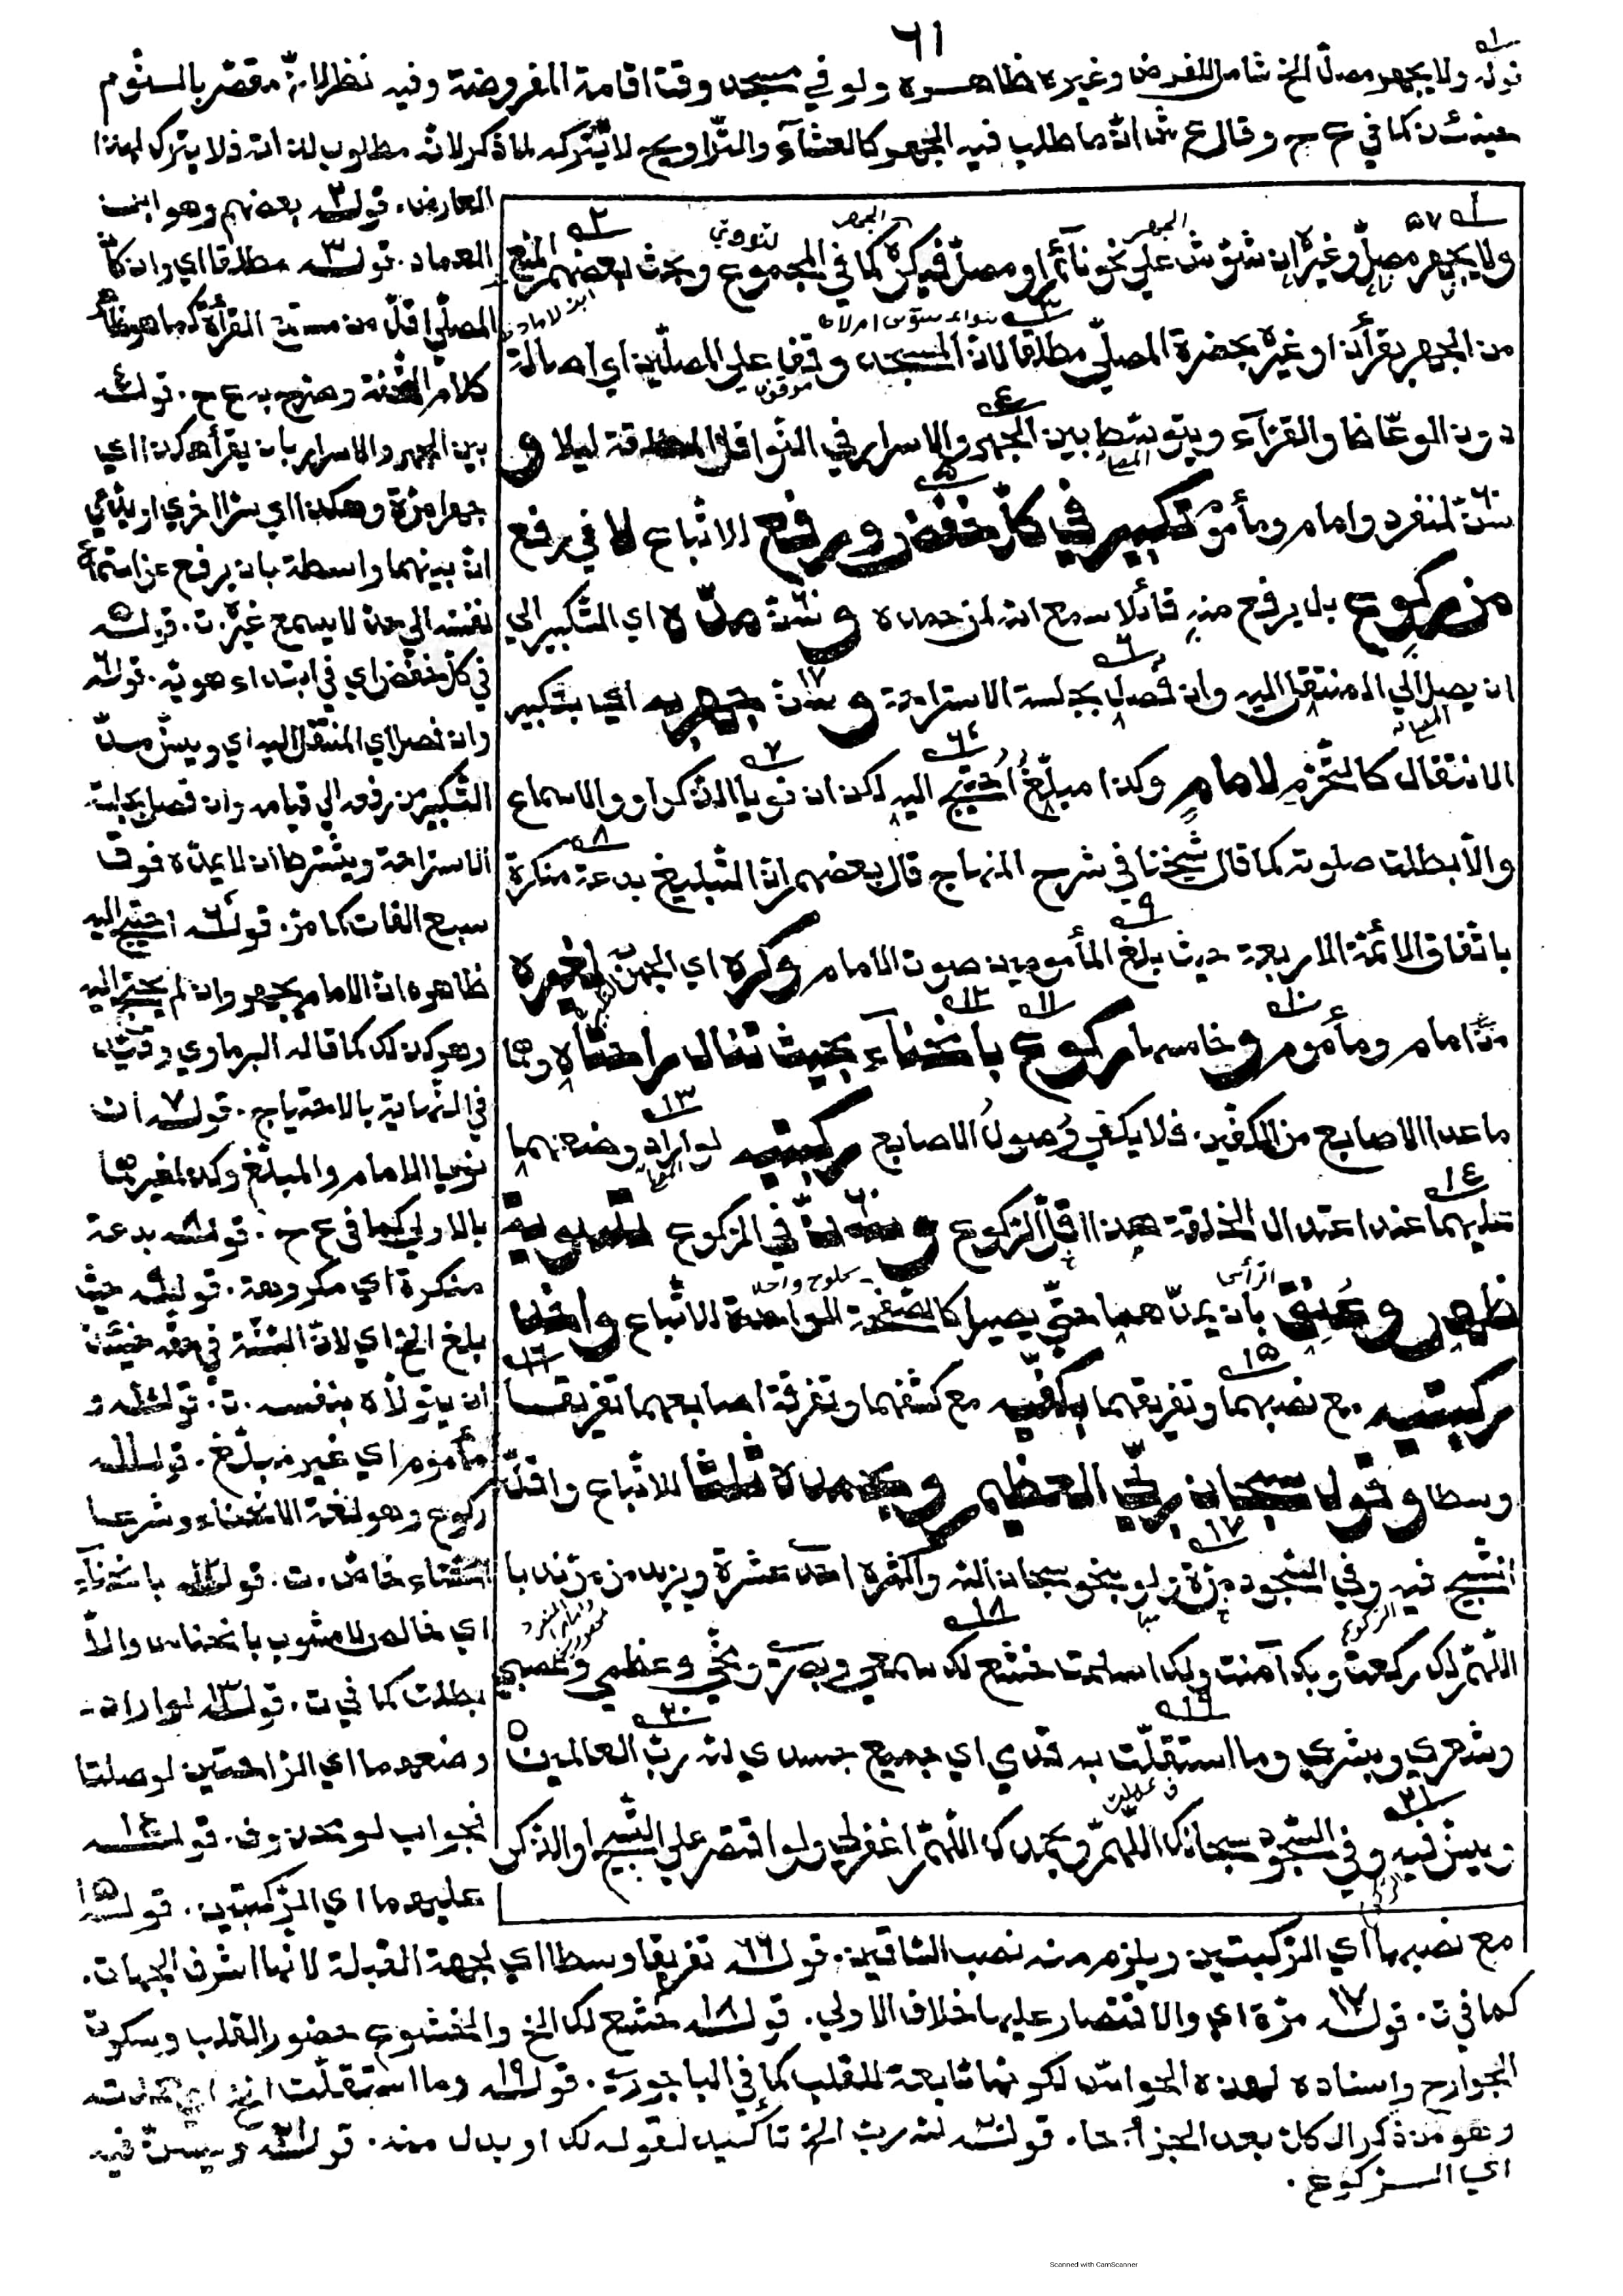 ٦١
قوله ولا يجهر مصل الخ شامل للفرض وغيره ظاهره ولو في مسجد وقت اقامة المفروضة وفيه نظر لانه مقصر بالسنوم
حينئذ كما في ع ح وقال ع ش ان ما طلب فيه الجهر كالعشآء والتراويح لا يتركه لما ذكر لانه مطلوب لذاته فلا يترك لهذا
ولا يجهر مصل وغيره ان شوش على نحو نآئم او مصل فيكره كما في المجموع وبحث بعضهم المنع
من الجهر بقرأن او غيره بحضرة المصلي مطلقا لان المسجد وقف على المصلين اي اصالة
دون الوعاظ والقرآء ويتوسط بين الجهر والاسرار في النوافل المطلقة ليلا و
سن لمنفرد وامام ومأموم تكبير في كل خفض ورفع للاتباع لا في رفع
من ركوع بل يرفع منه قائلا سمع الله لمن حمده و سن مده اي التكبير الى
ان يصل الى المنتقل اليه وان فصل بجلسة الاستراحة و سن جهر به اي بتكبير
الانتقال كالتحرم لامام وكذا مبلغ احتيج اليه لكن ان نويا الذكر او والاسماع
والا بطلت صلوته كما قال شيخنا في شرح المنهاج قال بعضهم ان التبليغ بدعة منكرة
باتفاق الائمة الاربعة حيث بلغ المأمومين صوت الامام وكره اي الجهر به لغيره
من امام ومأموم و خامسها ركوع بانحنآء بحيث تنال راحتاه وهما
ما عدا الاصابع من الكفين فلا يكفي وصول الاصابع ركبتيه لو اراد وضعهما
عليهما عند اعتدال الخلقة هذا اقل الركوع و سن في الركوع تسوية
ظهر وعنق بان يمدهما حتى يصيرا كالصفحة الواحدة للاتباع واخذ
ركبتيه مع نصبهما وتفريقهما بكفيه مع كشفهما وتفرقة اصابعهما تفريقا
وسطا وقول سبحان ربي العظيم وبحمده ثلاثا للاتباع واقل
التسبيح فيه وفي السجود مرة ولو بنحو سبحان الله واكثره احد عشرة ويزيد من مر ندبا
اللهم لك ركعت وبك آمنت ولك اسلمت خشع لك سمعي وبصري ومخي وعظمي وعصبي
وشعري وبشري وما استقلت به قدمي اي جميع جسدي لله رب العالمين
ويسن فيه وفي السجود سبحانك اللهم وبحمدك اللهم اغفر لي ولو اقتصر على التسبيح او الذكر
المعارض. قوله بعضهم وهو ابن
العماد. قوله مطلقا اي وان كان
المصلي اقل من مستمع القرأة كما هو ظاهر
كلام وصرح به ع ح. قوله
بين الجهر والاسرار بان يقرأ هكذا اي
جهرا مرة وهكذا اي سرا اخرى او يأتي
ان بينهما واسطة بان يرفع عن اسماع
نفسه الى حد لا يسمع غيره. ت. قوله
في كل خفض اي في ابتداء هويه. قوله
وان فصل اي المنتقل اليه اي ويسن مد
التكبير من رفعه الى قيامه وان فصل بجلسة
الاستراحة ويشترط ان لا يمده فوق
سبع الفات كما مر. قوله احتيج اليه
ظاهره ان الامام يجهر وان لم يحتج اليه
وهو كذلك كما قاله البرماوي وقيده
في النهاية بالاحتياج. قوله ان
نويا الامام والمبلغ وكذا غيرهما
بالاولى كما في ع ح. قوله بدعة
منكرة اي مكروهة. قوله حيث
بلغ الخ اي لان السنة في حقه حينئذ
ان يتولاه بنفسه. ت. قوله و
مأموم اي غير مبلغ. قوله
ركوع وهو لغة الانحناء وشرعا
انحناء خاص. ت. قوله بانحنآء
اي خالص لا مشوب بانخناس والا
بطلت كما في ت. قوله لو اراد
وضعهما اي الراحتين لوصلتا
فجواب لو محذوف. قوله
عليهما اي الركبتين. قوله
مع نصبهما اي الركبتين ويلزم منه نصب الساقين. قوله تفريقا وسطا اي لجهة القبلة لانها اشرف الجهات.
كما في ت. قوله مرة اي والاقتصار عليها خلاف الاولى. قوله خشع لك الخ والخشوع حضور القلب وسكون
الجوارح واسناده لهذه الحواس لكونها تابعة للقلب كما في الباجوري. قوله وما استقلت الخ اي حملته
وهو من ذكر الكل بعد الجزأ. قوله لله رب الخ تأكيد لقوله لك او بدل منه. قوله ويسن فيه
اي الركوع.
Scanned with CamScanner